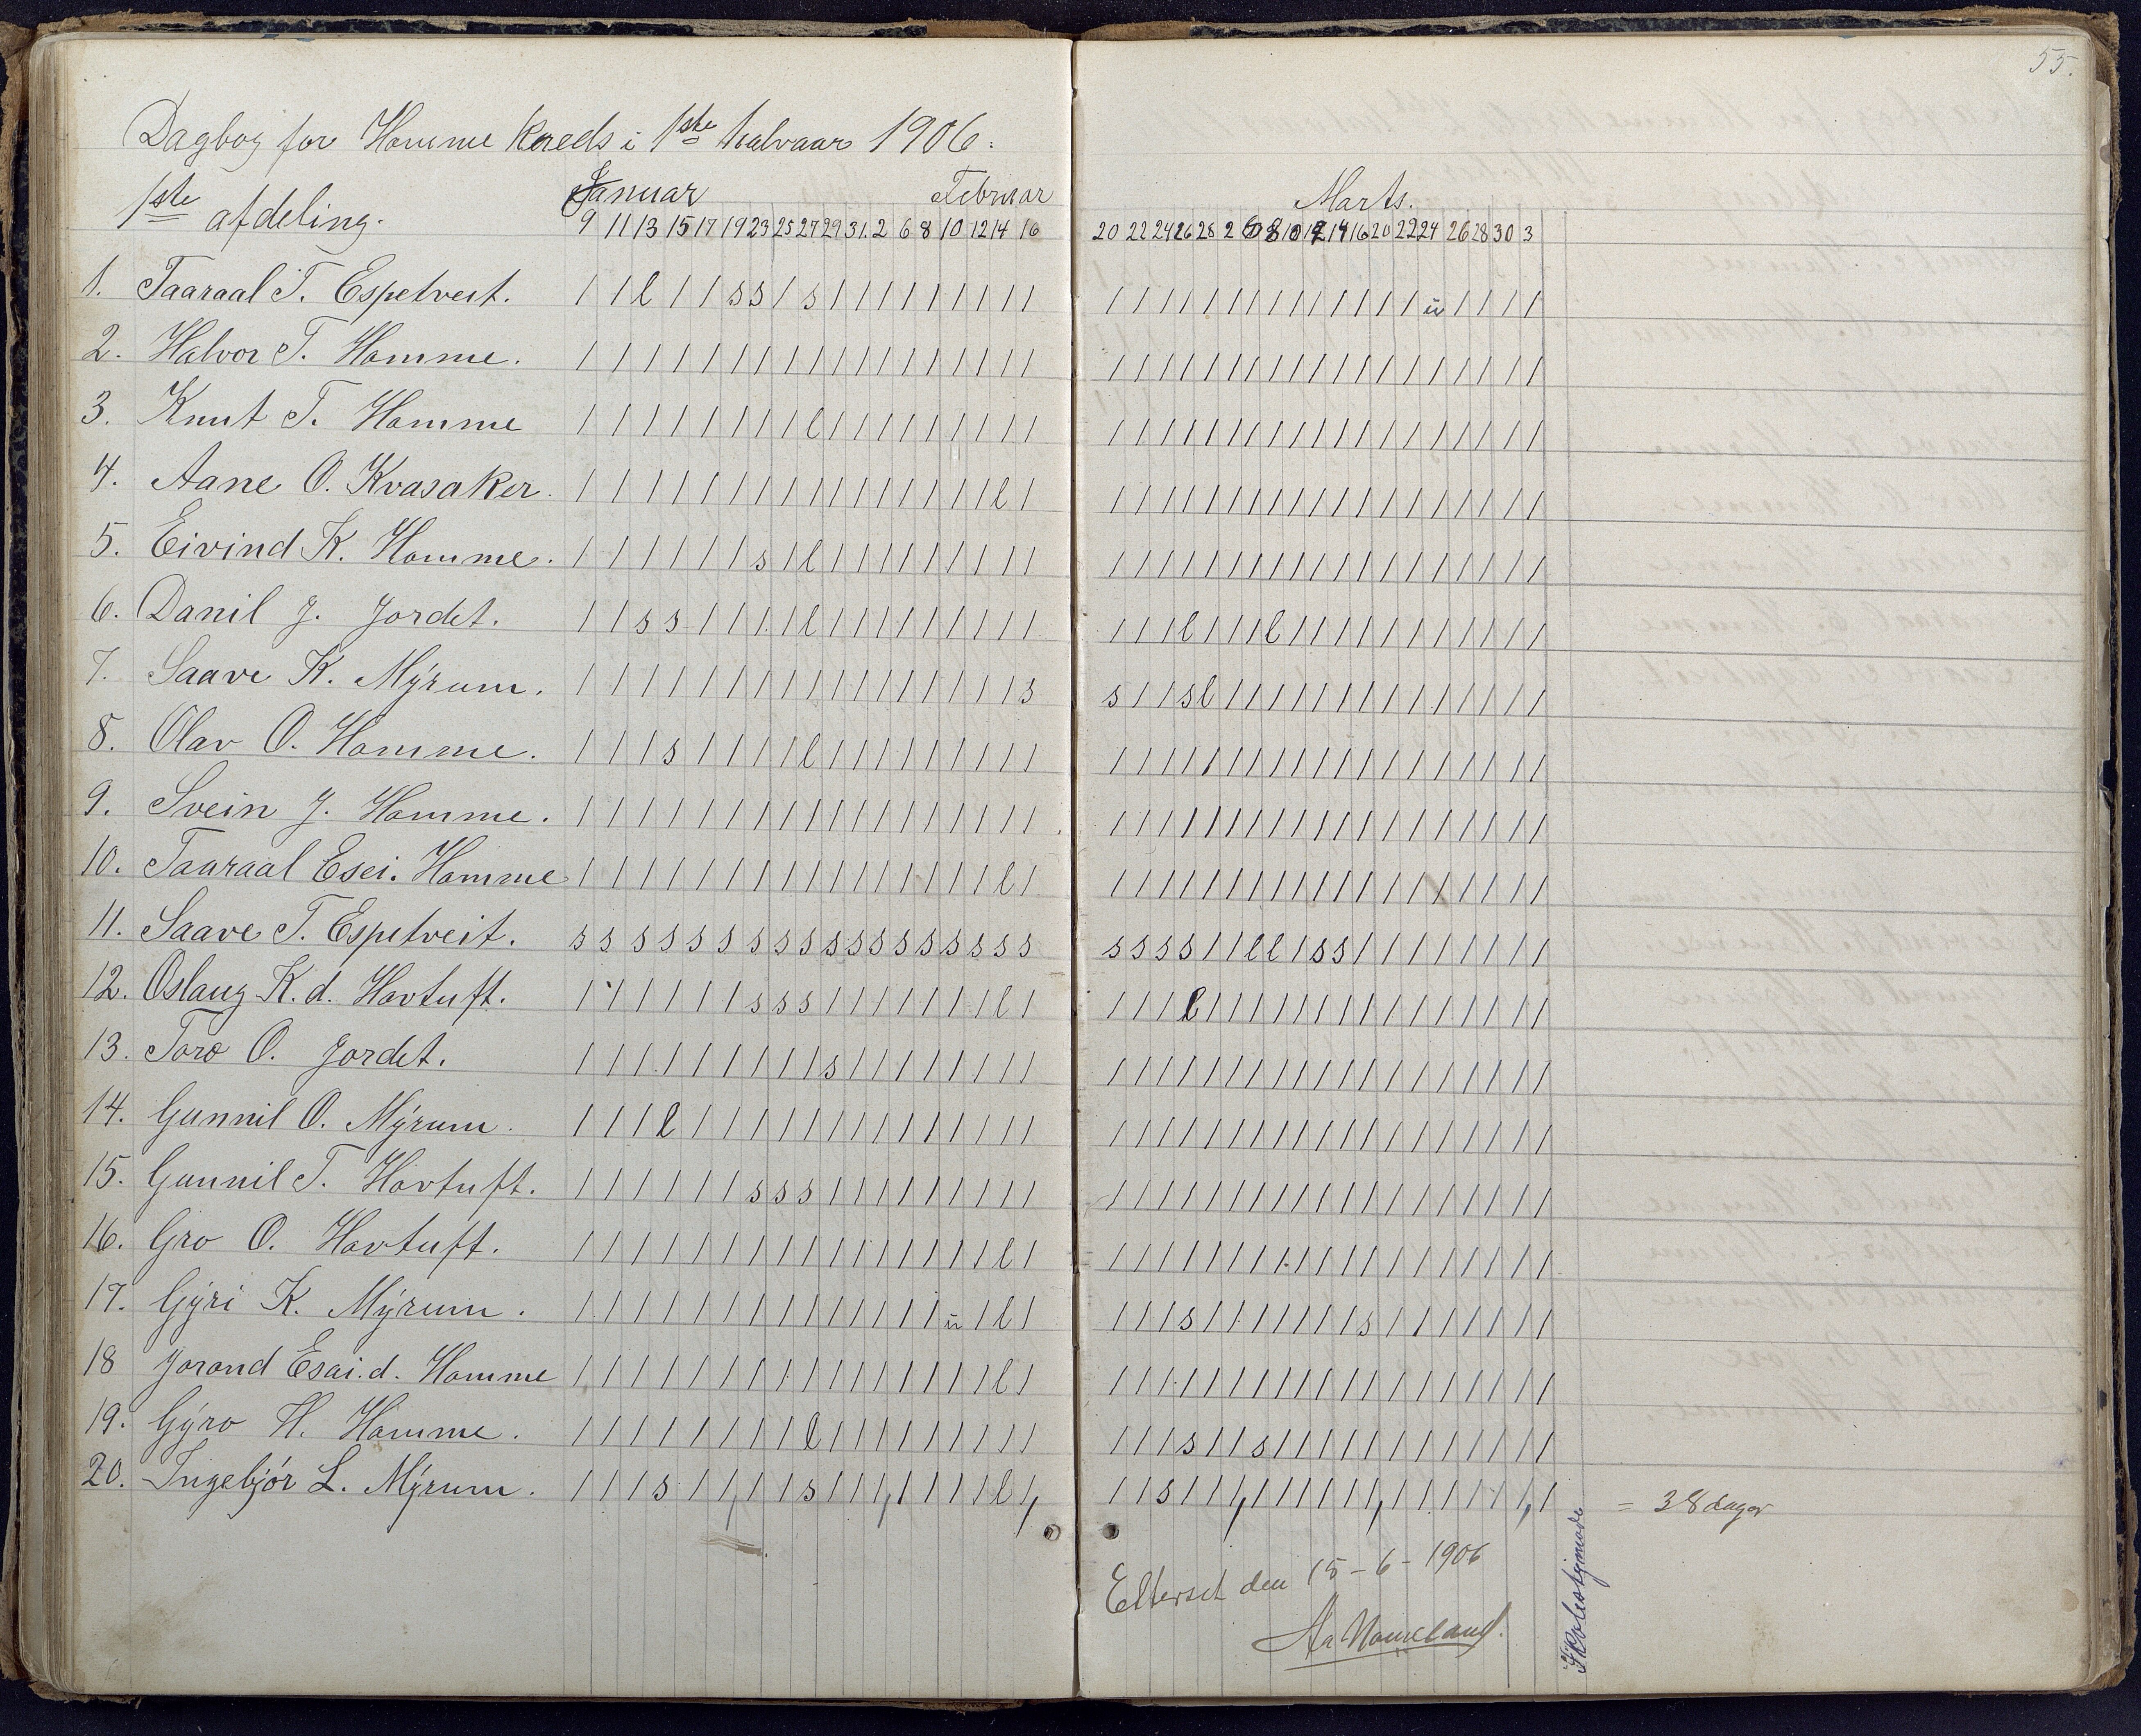 55.
Dagbog for Homme Kreds i 1ste halvaar 1906.
1ste afdeling.
Januar Februar
9 11 13 15 17 19 23 25 27 29 31. 2 6 8 10 12 14 16
Marts.
20 22 24 26 28 2 6 8 10 12 14 16 20 22 24 26 28 30 3
1. Taaraal T. Espetveit. | | l | | s s | s | | | | | | | | | | | | | | | | | | | | | | | ü | | | |
2. Halvor T. Homme. | | | | | | | | | | | | | | | | | | | | | | | | | | | | | | | | | | | | |
3. Knut T. Homme | | | | | | | | l | | | | | | | | | | | | | | | | | | | | | | | | | | | |
4. Aane O. Kvasaker. | | | | | | | | | | | | | | | | l | | | | | | | | | | | | | | | | | | | |
5. Eivind K. Homme. | | | | | | s | l | | | | | | | | | | | | | | | | | | | | | | | | | | | |
6. Danil J. Jordet. | | s s | | | | l | | | | | | | | | | | | l | | | l | | | | | | | | | | |
7. Saave K. Mýrum. | | | | | | | | | | | | | | | | | s s | | s l | | | | | | | | | | | | | |
8. Olav O. Homme. | | | s | | | | l | | | | | | | | | | | | | | | | | | | | | | | | | | | |
9. Svein J. Homme. | | | | | | | | | | | | | | | | | | | | | | | | | | | | | | | | | | | | |
10. Taaraal Esei. Homme | | | | | | | | | | | | | | | | l | | | | | | | | | | | | | | | | | | | |
11. Saave T. Espetveit. s s s s s s s s s s s s s s s s s s s s s s | | l l | s s | | | | | | | |
12. Oslaug K. d. Hovtuft. | | | | | | s s s | | | | | | | l | | | | l | | | | | | | | | | | | | | |
13. Toro O. Jordet. | | | | | | | | | s | | | | | | | | | | | | | | | | | | | | | | | | | | |
14. Gunnil O. Mýrum. | | | l | | | | | | | | | | | | | | | | | | | | | | | | | | | | | | | | |
15. Gunnil T. Hovtuft. | | | | | | s s s | | | | | | | | | | | | | | | | | | | | | | | | | | | |
16. Gro O. Hovtuft. | | | | | | | | | | | | | | | | l | | | | | | | | | | | | | | | | | | | |
17. Gýri K. Mýrum. | | | | | | | | | | | | | | ü | l | | | | s | | | | | | | s | | | | | | |
18 Jorond Esai.d. Homme | | | | | | | | | | | | | | | | l | | | | | | | | | | | | | | | | | | | |
19. Gýro H. Homme. | | | | | | | | l | | | | | | | | | | | | s | | s | | | | | | | | | | | |
20. Ingebjór L. Mýrum. | | | s | | | | s | | | | | | | l | | | s | | | | | | | | | | | | | | | |
= 38 dager
Efterset den 15-6-1906
Aa Homeland.